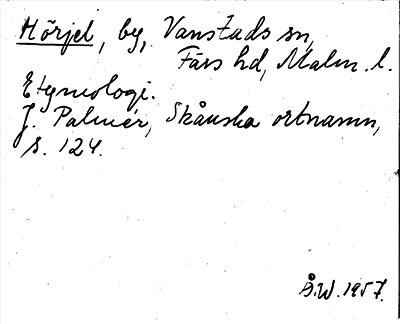 Hörjel, by, Vanstads sn,
Färs hd, Malm. l.
Etymologi.
J. Palmér, Skånska ortnamn,
s. 124.
B.W. 1957.